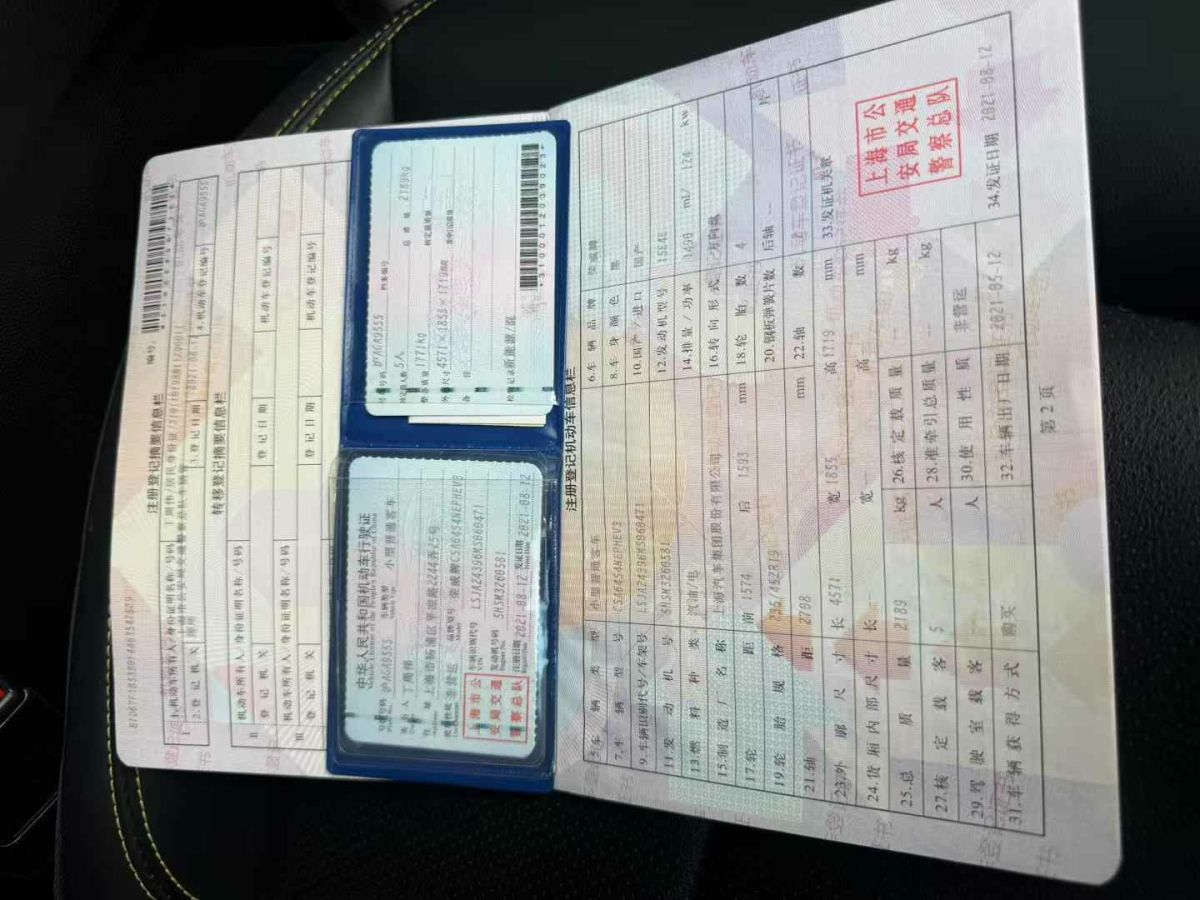 注册登记摘要信息栏
编号:
1.机动车所有人/身份证明名称/号码
2.登记机关
3.登记日期
4.机动车登记编号 沪AGA9555
转移登记摘要信息栏
机动车所有人/身份证明名称/号码
登记机关
登记日期
机动车登记编号
机动车所有人/身份证明名称/号码
登记机关
登记日期
机动车登记编号
中华人民共和国机动车行驶证
Vehicle License of the People's Republic of China
号牌号码 沪AGA9555 车辆类型 小型普通客车
所有人
住址
使用性质 非营运 品牌型号 荣威牌CSA6454NEPHEV3
车辆识别代号
发动机号码 5HSM3260581
注册日期 2021-08-12 发证日期 2021-08-12
上海市公
安局交通
警察总队
号牌号码 沪AGA9555 档案编号
核定载人数 5人 总质量 2189kg
整备质量 1771kg 核定载质量
外廓尺寸 4571×1855×1719mm 准牵引总质量
备注
检验记录
*3100012039023*
注册登记机动车信息栏
5.车辆类型 小型普通客车 6.车辆品牌 荣威牌
7.车辆型号 CSA6454NEPHEV3 8.车身颜色 黑
9.车辆识别代号/车架号 10.国产/进口 国产
11.发动机号 5HSM3260581 12.发动机型号 15E4E
13.燃料种类 汽油/电 14.排量/功率 1490 ml/ 124 kw
15.制造厂名称 上海汽车集团股份有限公司 16.转向形式 方向盘
17.轮距 前 1574 后 1593 mm 18.轮胎数 4
19.轮胎规格 20.钢板弹簧片数 后轴 片
21.轴距 2708 mm 22.轴数
23.外廓尺寸 长 4571 宽 1855 高 1719 mm 33.发证机关章
24.货厢内部尺寸 长 宽 高 mm
25.总质量 2189 kg 26.核定载质量 kg
27.核定载客 5 人 28.准牵引总质量 kg
29.驾驶室载客 人 30.使用性质 非营运
31.车辆获得方式 购买 32.车辆出厂日期 2021-05-12 34.发证日期 2021-08-12
上海市公
安局交通
警察总队
第 2 页